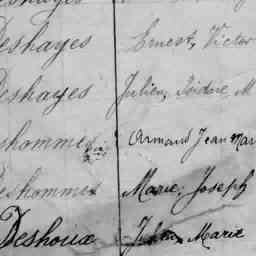 Deshayes Ernest, Victor
Deshayes Julien, Isidore M
Deshommes Armand Jean Mar
Deshommes Marie, Joseph
Deshoux Marie